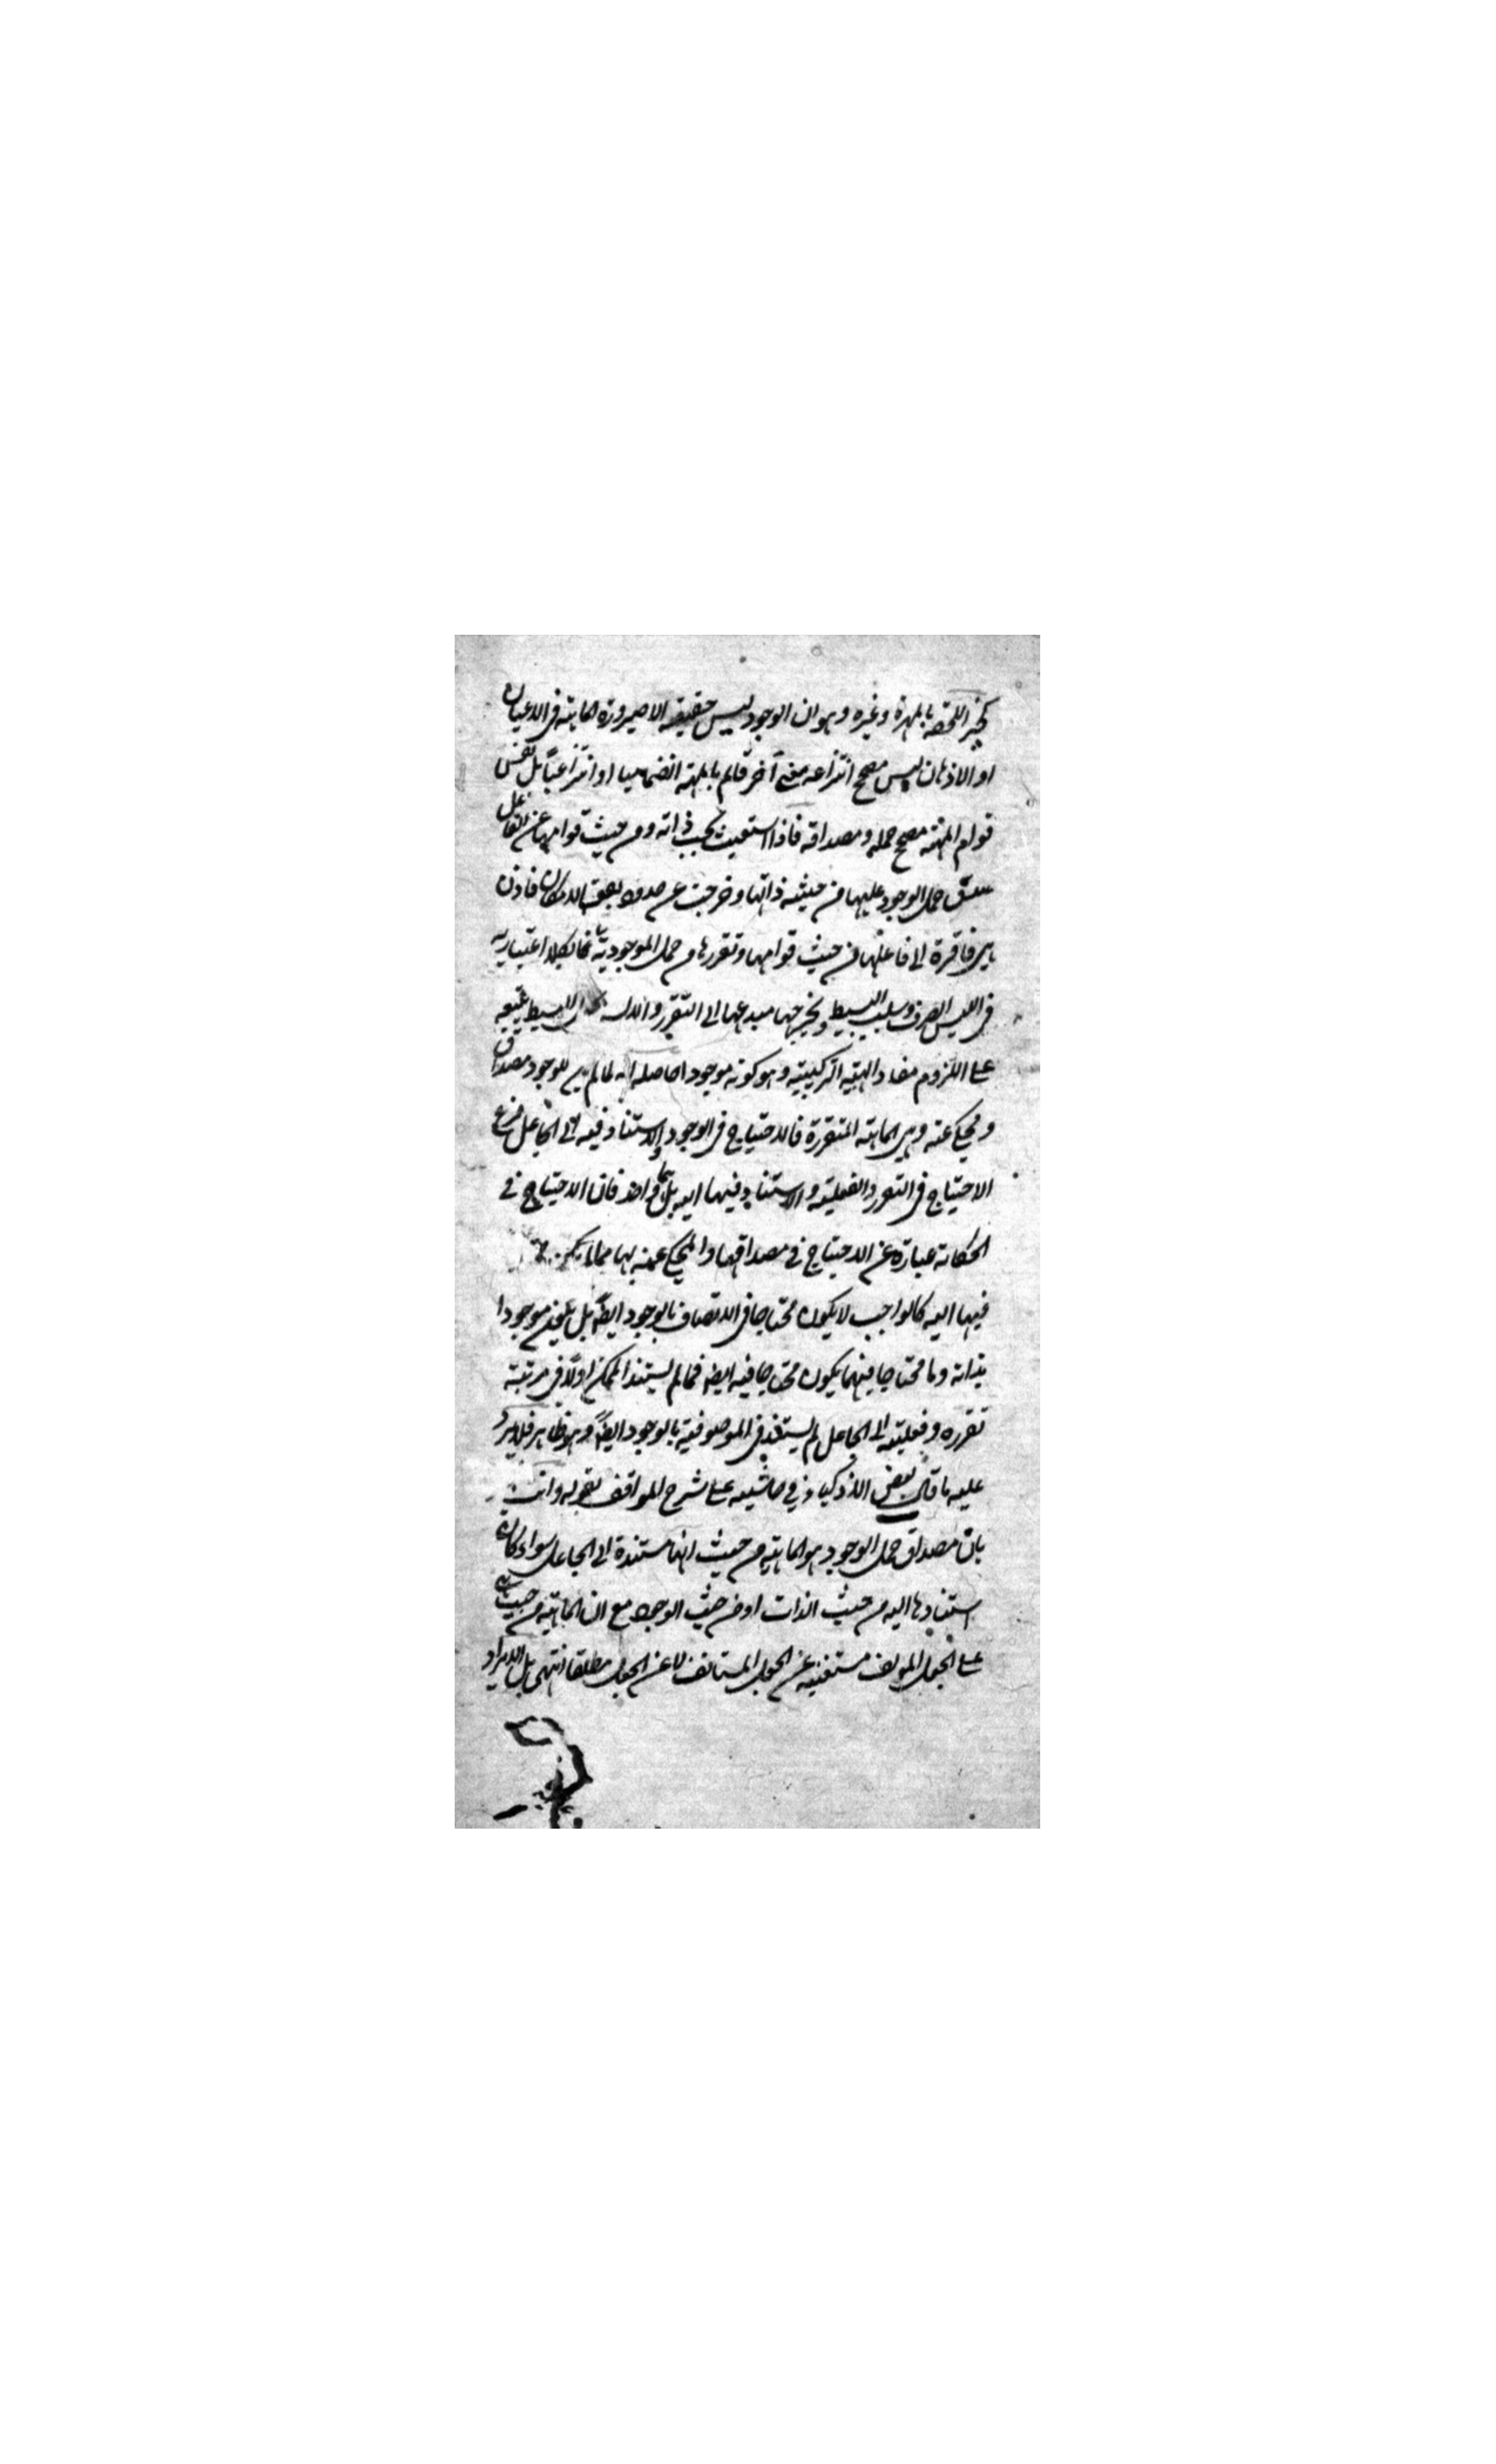 وغيره وهو ان الوجود ليس حقيقته الا صيرورة الماهية في الاعيان
او الاذهان ليس مصحح انتزاعه معنى آخر قائم بالمهية انضماميا او انتزاعيا بل نفس
قوام المهية مصحح حمله ومصداقه فاذا استغنيت بحسب ذاته ومن حيث قوامها عن الفاعل
صدق حمل الوجود عليها من حيثية ذاتها وخرجت عن حدود بقعة الامكان فاذن
هي فاقرة الى فاعلها من حيث قوامها وتقررها ومن حمل الموجودية
في الليس الصرف وسلب البسيط ويخرجها مبدعها الى التقرر و البسيط يتبعه
على اللزوم مفاد الهيئة التركيبية وهو كونه موجودا حاصله انه لما لم للوجود مصداق
ومحكي عنه وهي الماهية المتقررة فالاحتياج في الوجود والاستناد فيه الى الجاعل فرع
الاحتياج في التقرر والفعلية والاستناد فيهما اليه بل هما واحد فان الاحتياج في
الحكاية عبارة عن الاحتياج في مصداقها والمحكي عنه بها فما لم يكن
فيهما اليه كالواجب لا يكون محتاجا في الاتصاف بالوجود ايضا بل يكون موجودا
بذاته وما محتاجا فيهما يكون محتاجا فيه ايضا فما لم يستند الممكن اولا في مرتبة
تقرره وفعليته الى الجاعل لم يستند في الموصوفية بالوجود ايضا وهو ظاهر فلا يرد
عليه ما قال بعض الاذكياء في حاشيته على شرح المواقف بقوله وانت
بان مصداق حمل الوجود هو الماهية من حيث انها مستندة الى الجاعل سواء كان
استنادها اليه من حيث الذات او من حيث الوجود مع ان الماهية من حيث
على الجعل المؤلف مستغنية عن الجعل المستانف لا عن الجعل مطلقا انتهى بل الايراد